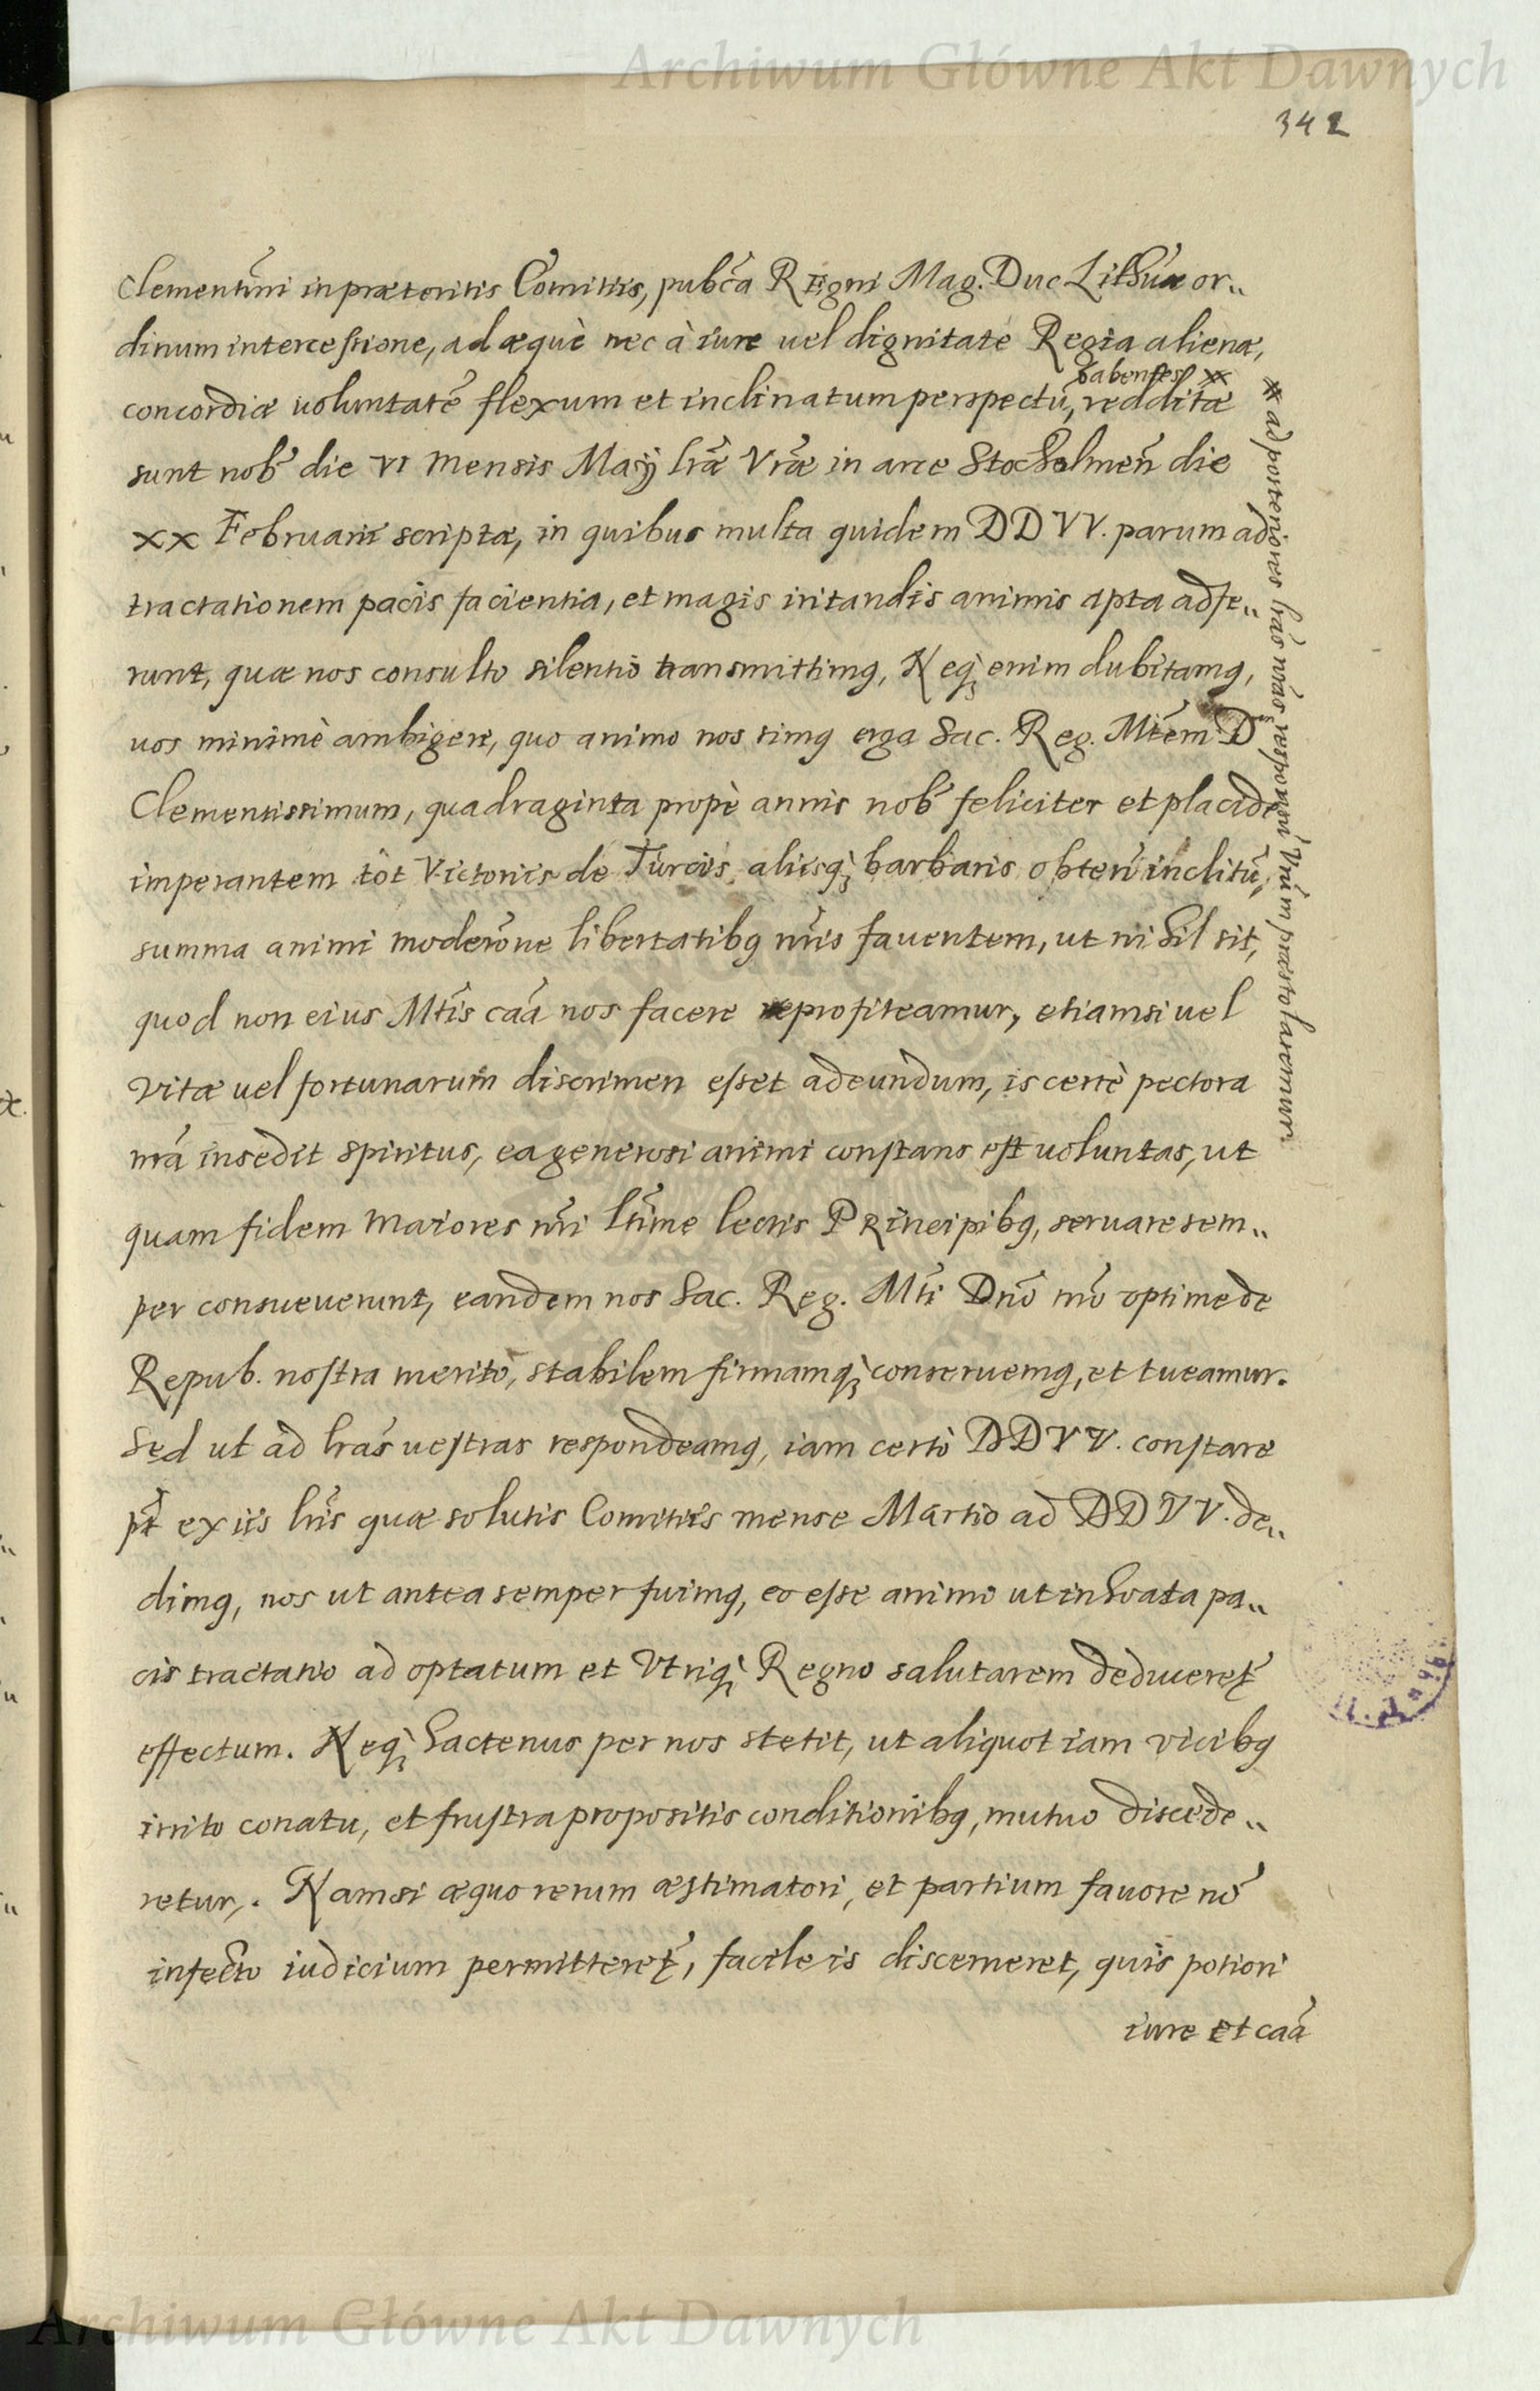 Archiwum Główne Akt Dawnych
342
Clementmi in præteritis Comitiis, pubca Regni Mag. Duc Lithuã or„
dinum intercessione, ad æquè nec à iure vel dignitate Regia alienæ,
habentes xx
concordiæ voluntatẽ flexum et inclinatum perspectũ, redditæ
sunt nob̃ die VI mensis Maÿ lræ Vræ in arce Stocholmeñ die
xx Februarii scriptæ, in quibus multa quidem DDVV. parum ad
tractationem pacis facientia, et magis iritandis animis apta adfe„
runt, quæ nos consulto silentio transmittimꝰ, Neqꝫ enim dubitamꝰ,
vos minimè ambigere, quo animo nos simꝰ erga Sac. Reg. Mtẽm D
Clementissimum, quadraginta propè annis nob̃ feliciter et placidè
imperantem tot Victoriis de Turcis aliisqꝫ barbaris obteñ inclitũ,
summa animi moderõne libertatibꝰ nr̃is faventem, ut nihil sit,
quod non eius Mtis caã nos facere profiteamur, etiamsi vel
vitæ vel fortunarum discrimen esset adeundum, is certè pectora
nr̃a insedit spiritus, ea generosi animi constans est voluntas, ut
quam fidem Maiores nr̃i ltime lectis Principibꝰ, servare sem„
per consueverunt, eandem nos Sac. Reg. Mti Dnõ nr̃o optime de
Repub. nostra merito, stabilem firmamqꝫ conservemꝰ, et tueamur.
Sed ut ad lr̃as vestras respondeamꝰ, iam certò DDVV. constare
pt̃ ex iis lr̃is quæ solutis Comitiis mense Martio ad DDVV. de„
dimꝰ, nos ut antea semper fuimꝰ, eo esse animo ut inhoata pa„
cis tractatio ad optatum et Utriqꝫ Regno salutarem deduceret̃
effectum. Neqꝫ hactenus per nos stetit, ut aliquot iam vicibꝰ
irrito conatu, et frustra propositis conditionibꝰ, mutuo discede„
retur,. Nam si æquo rerum æstimatori, et partium favore nõ
infecto iudicium permitteret̃, facile is discerneret, quis potiori
iure et caã
xx ad posteriores lr̃as nr̃as responsũ Vr̃m præstolaremur.
Archiwum Główne Akt Dawnych